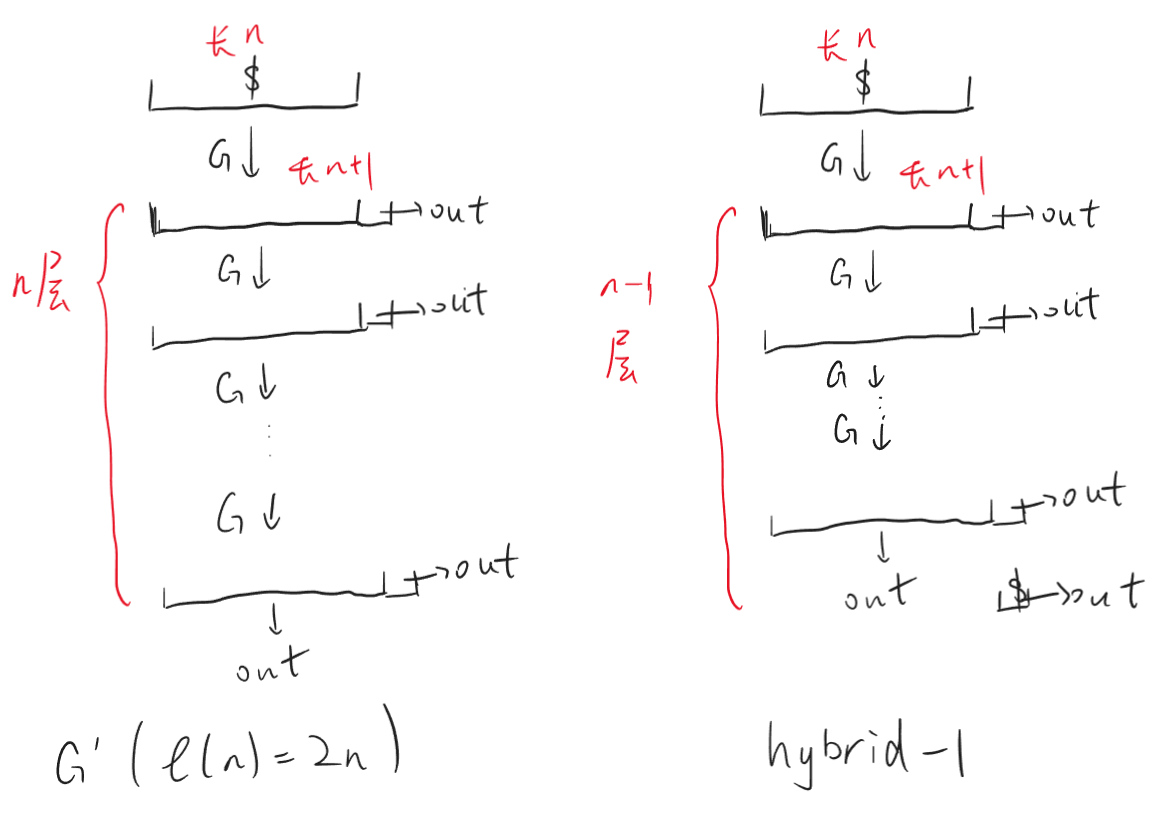 长 n
$
G↓
长 n+1
→out
n层
G↓
→out
G↓
⋮
G↓
→out
↓
out
G' ( ℓ(n) = 2n )
长 n
$
G↓
长 n+1
→out
n-1
层
G↓
→out
G↓
⋮
G↓
→out
↓
out
$→out
hybrid-1